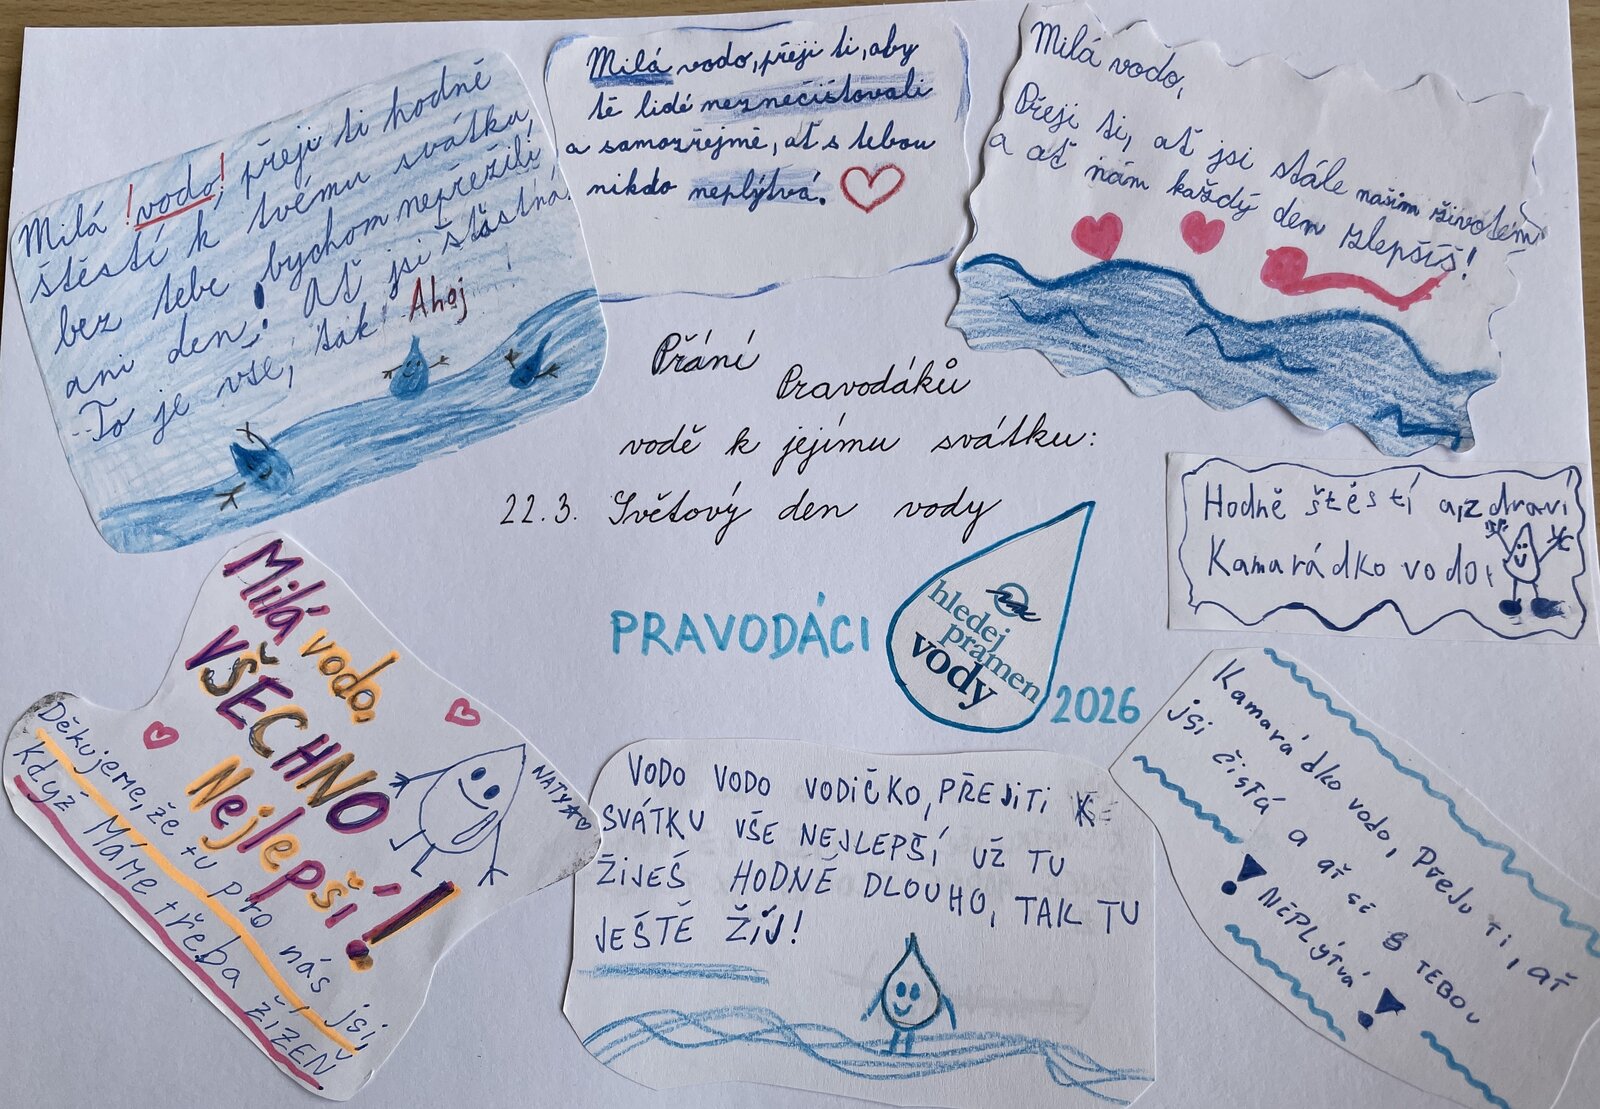 Milá !vodo!, přeji ti hodně
štěstí k tvému svátku,
bez tebe bychom nepřežili
ani den! Ať jsi šťastná!
To je vše, tak Ahoj
Milá vodo, přeji ti, aby
tě lidé neznečišťovali
a samozřejmě, ať s tebou
nikdo neplýtvá.
Milá vodo,
Přeji ti, ať jsi stále našim životem
a ať nám každý den zlepšíš!
Přání
Pravodáků
vodě k jejímu svátku:
22.3. Světový den vody
Hodně štěstí a,zdraví
Kamarádko vodo,
PRAVODÁCI
hledej
pramen
vody
2026
Milá vodo,
VŠECHNO
Nejlepší!
Děkujeme, že tu pro nás jsi,
když Máme třeba žízeň
NATY
VODO VODO VODIČKO, PŘEJI TI K
SVÁTKU VŠE NEJLEPŠÍ UŽ TU
ŽIJEŠ HODNĚ DLOUHO, TAK TU
JEŠTĚ ŽIJ!
Kamarádko vodo, Přeju ti, ať
jsi čistá a ať se s TEBOU
! NEPLÝTVÁ !